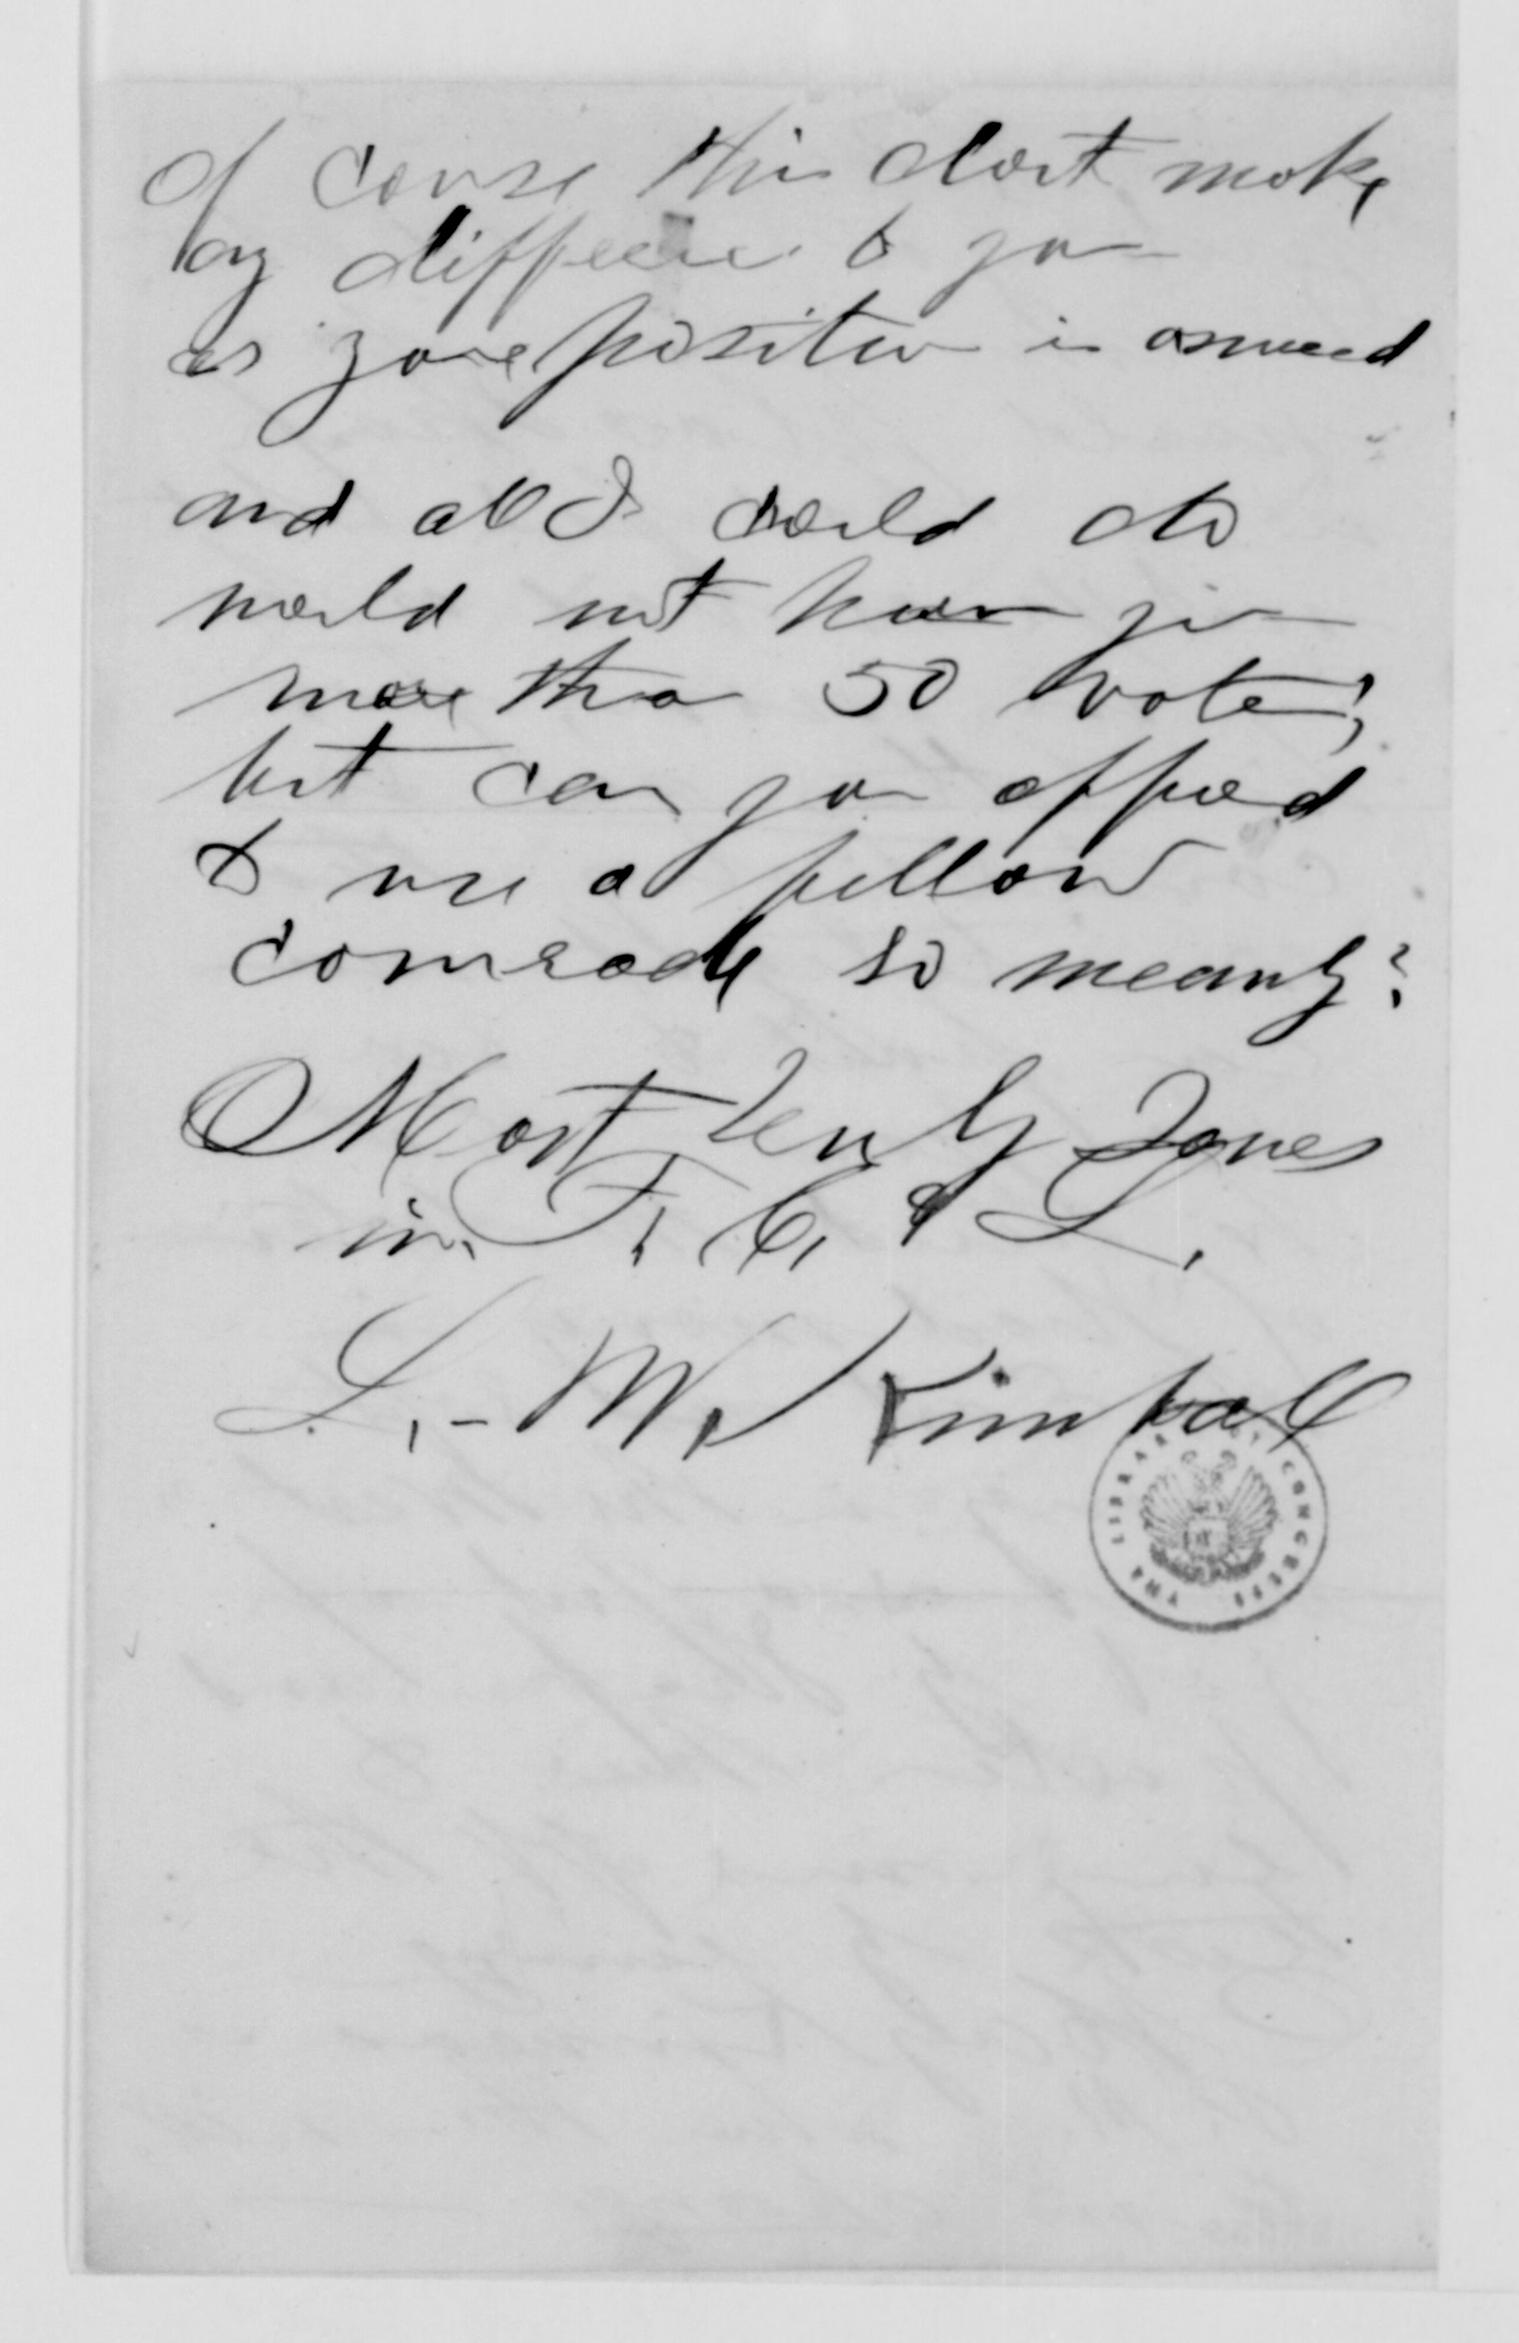 Of course this dont make
any difference to you
as your position is assured
and all I could do
would not harm you
more than 50 votes,
but can you afford
to use a fellow
comrade so meanly?
Most truly Yours
in. F, C, & L.
L, - M, Kimball
THE LIBRARY OF CONGRESS